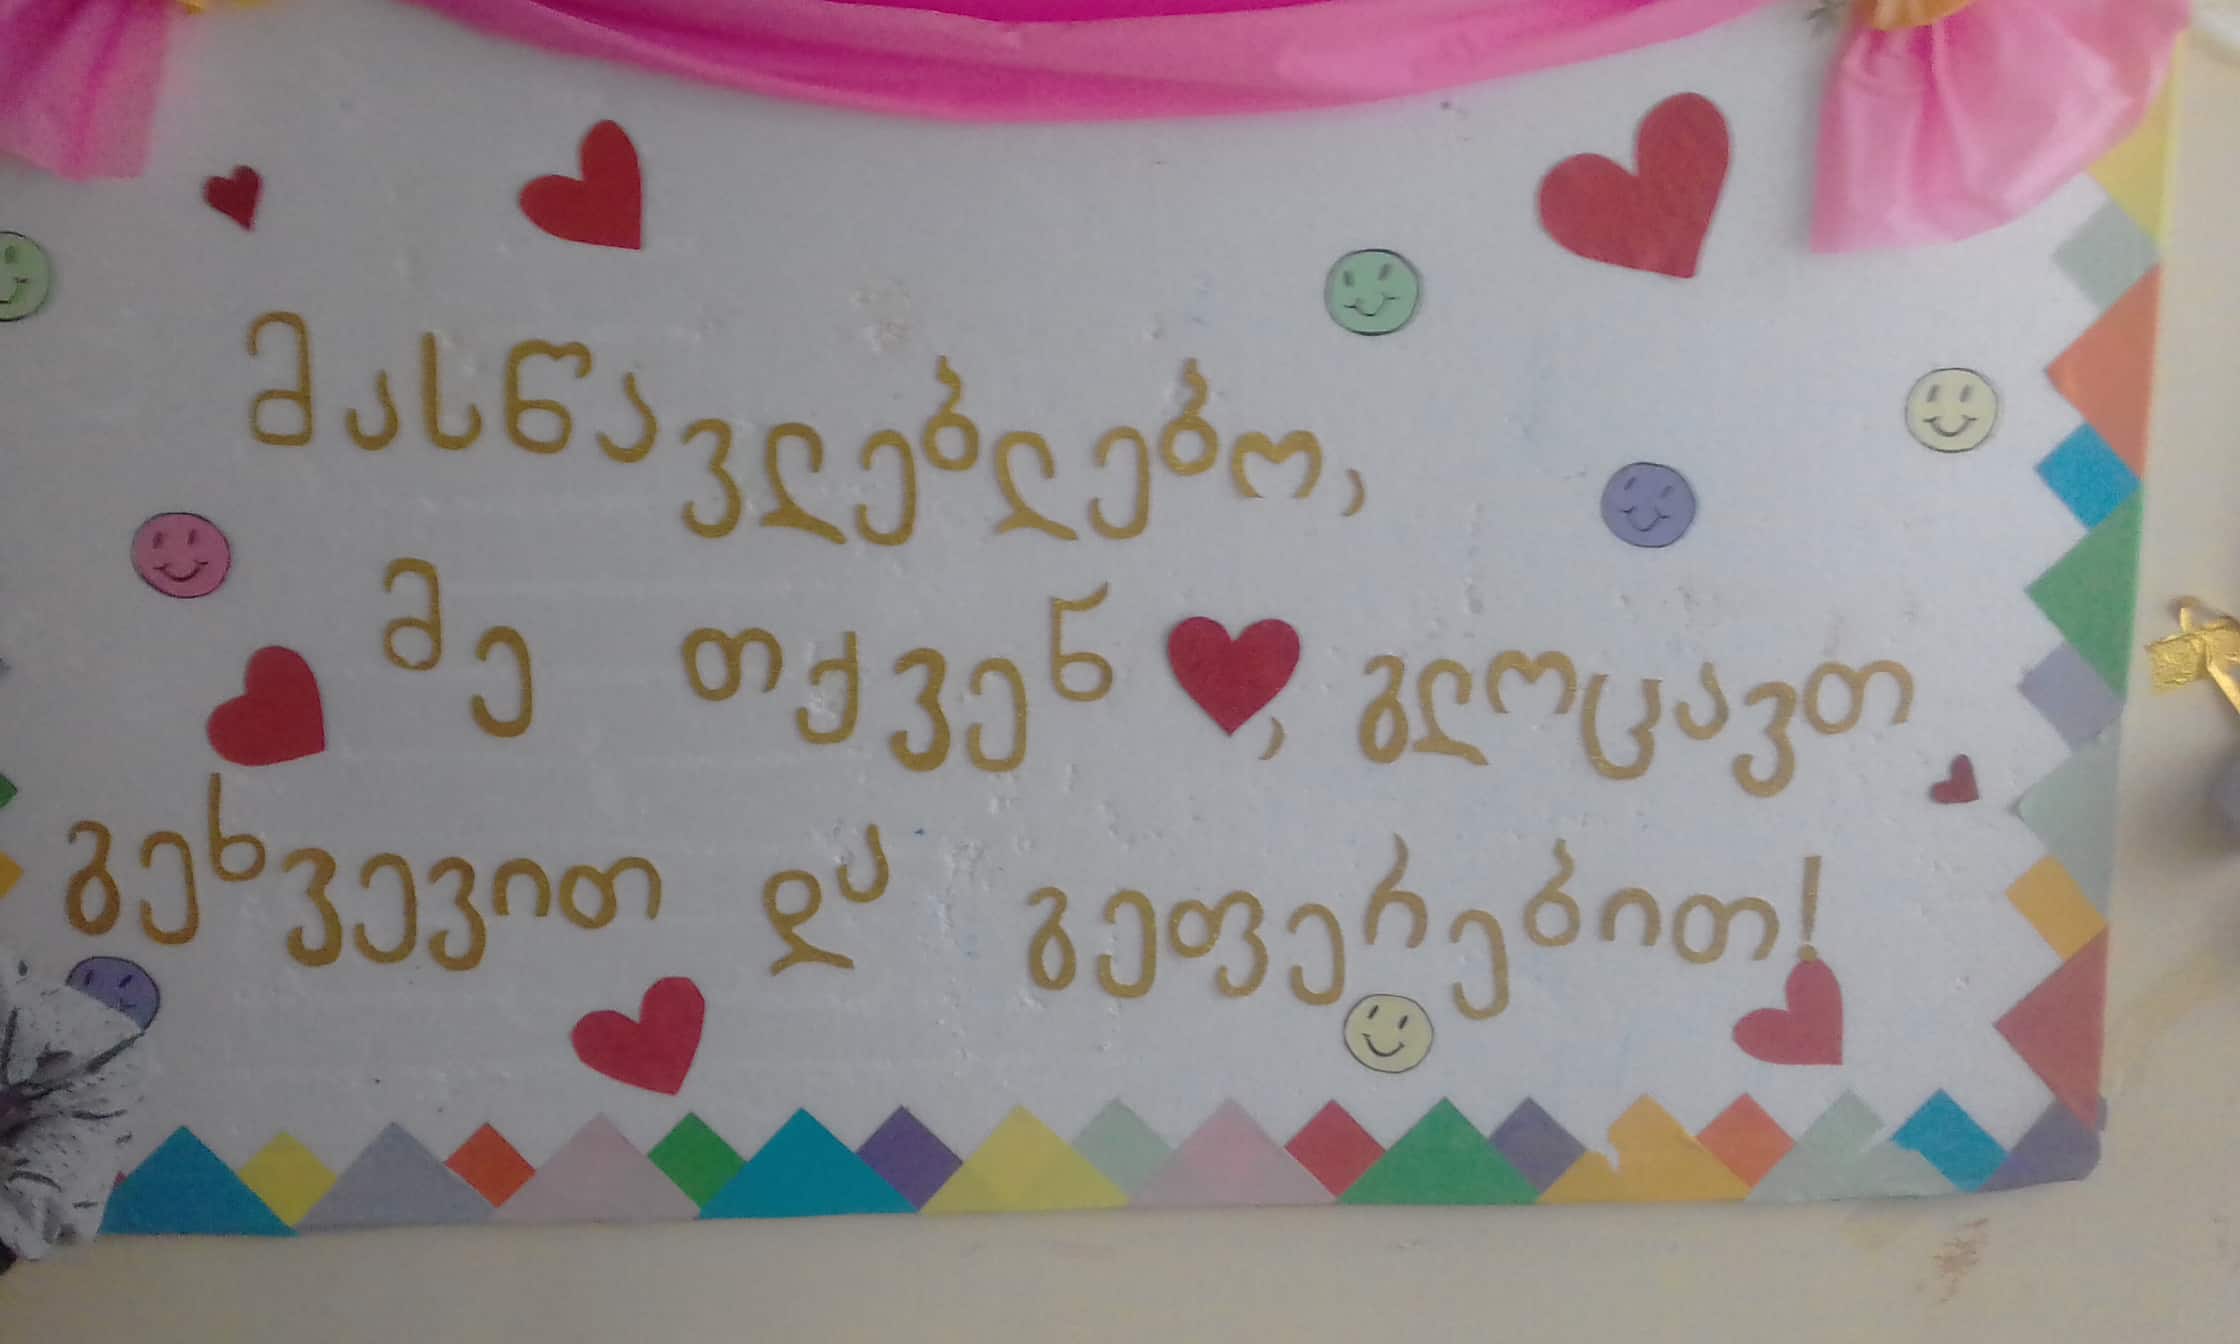 მასწავლებლებო,
მე თქვენ ❤, გლოცავთ
გეხვევით და გეფერებით!